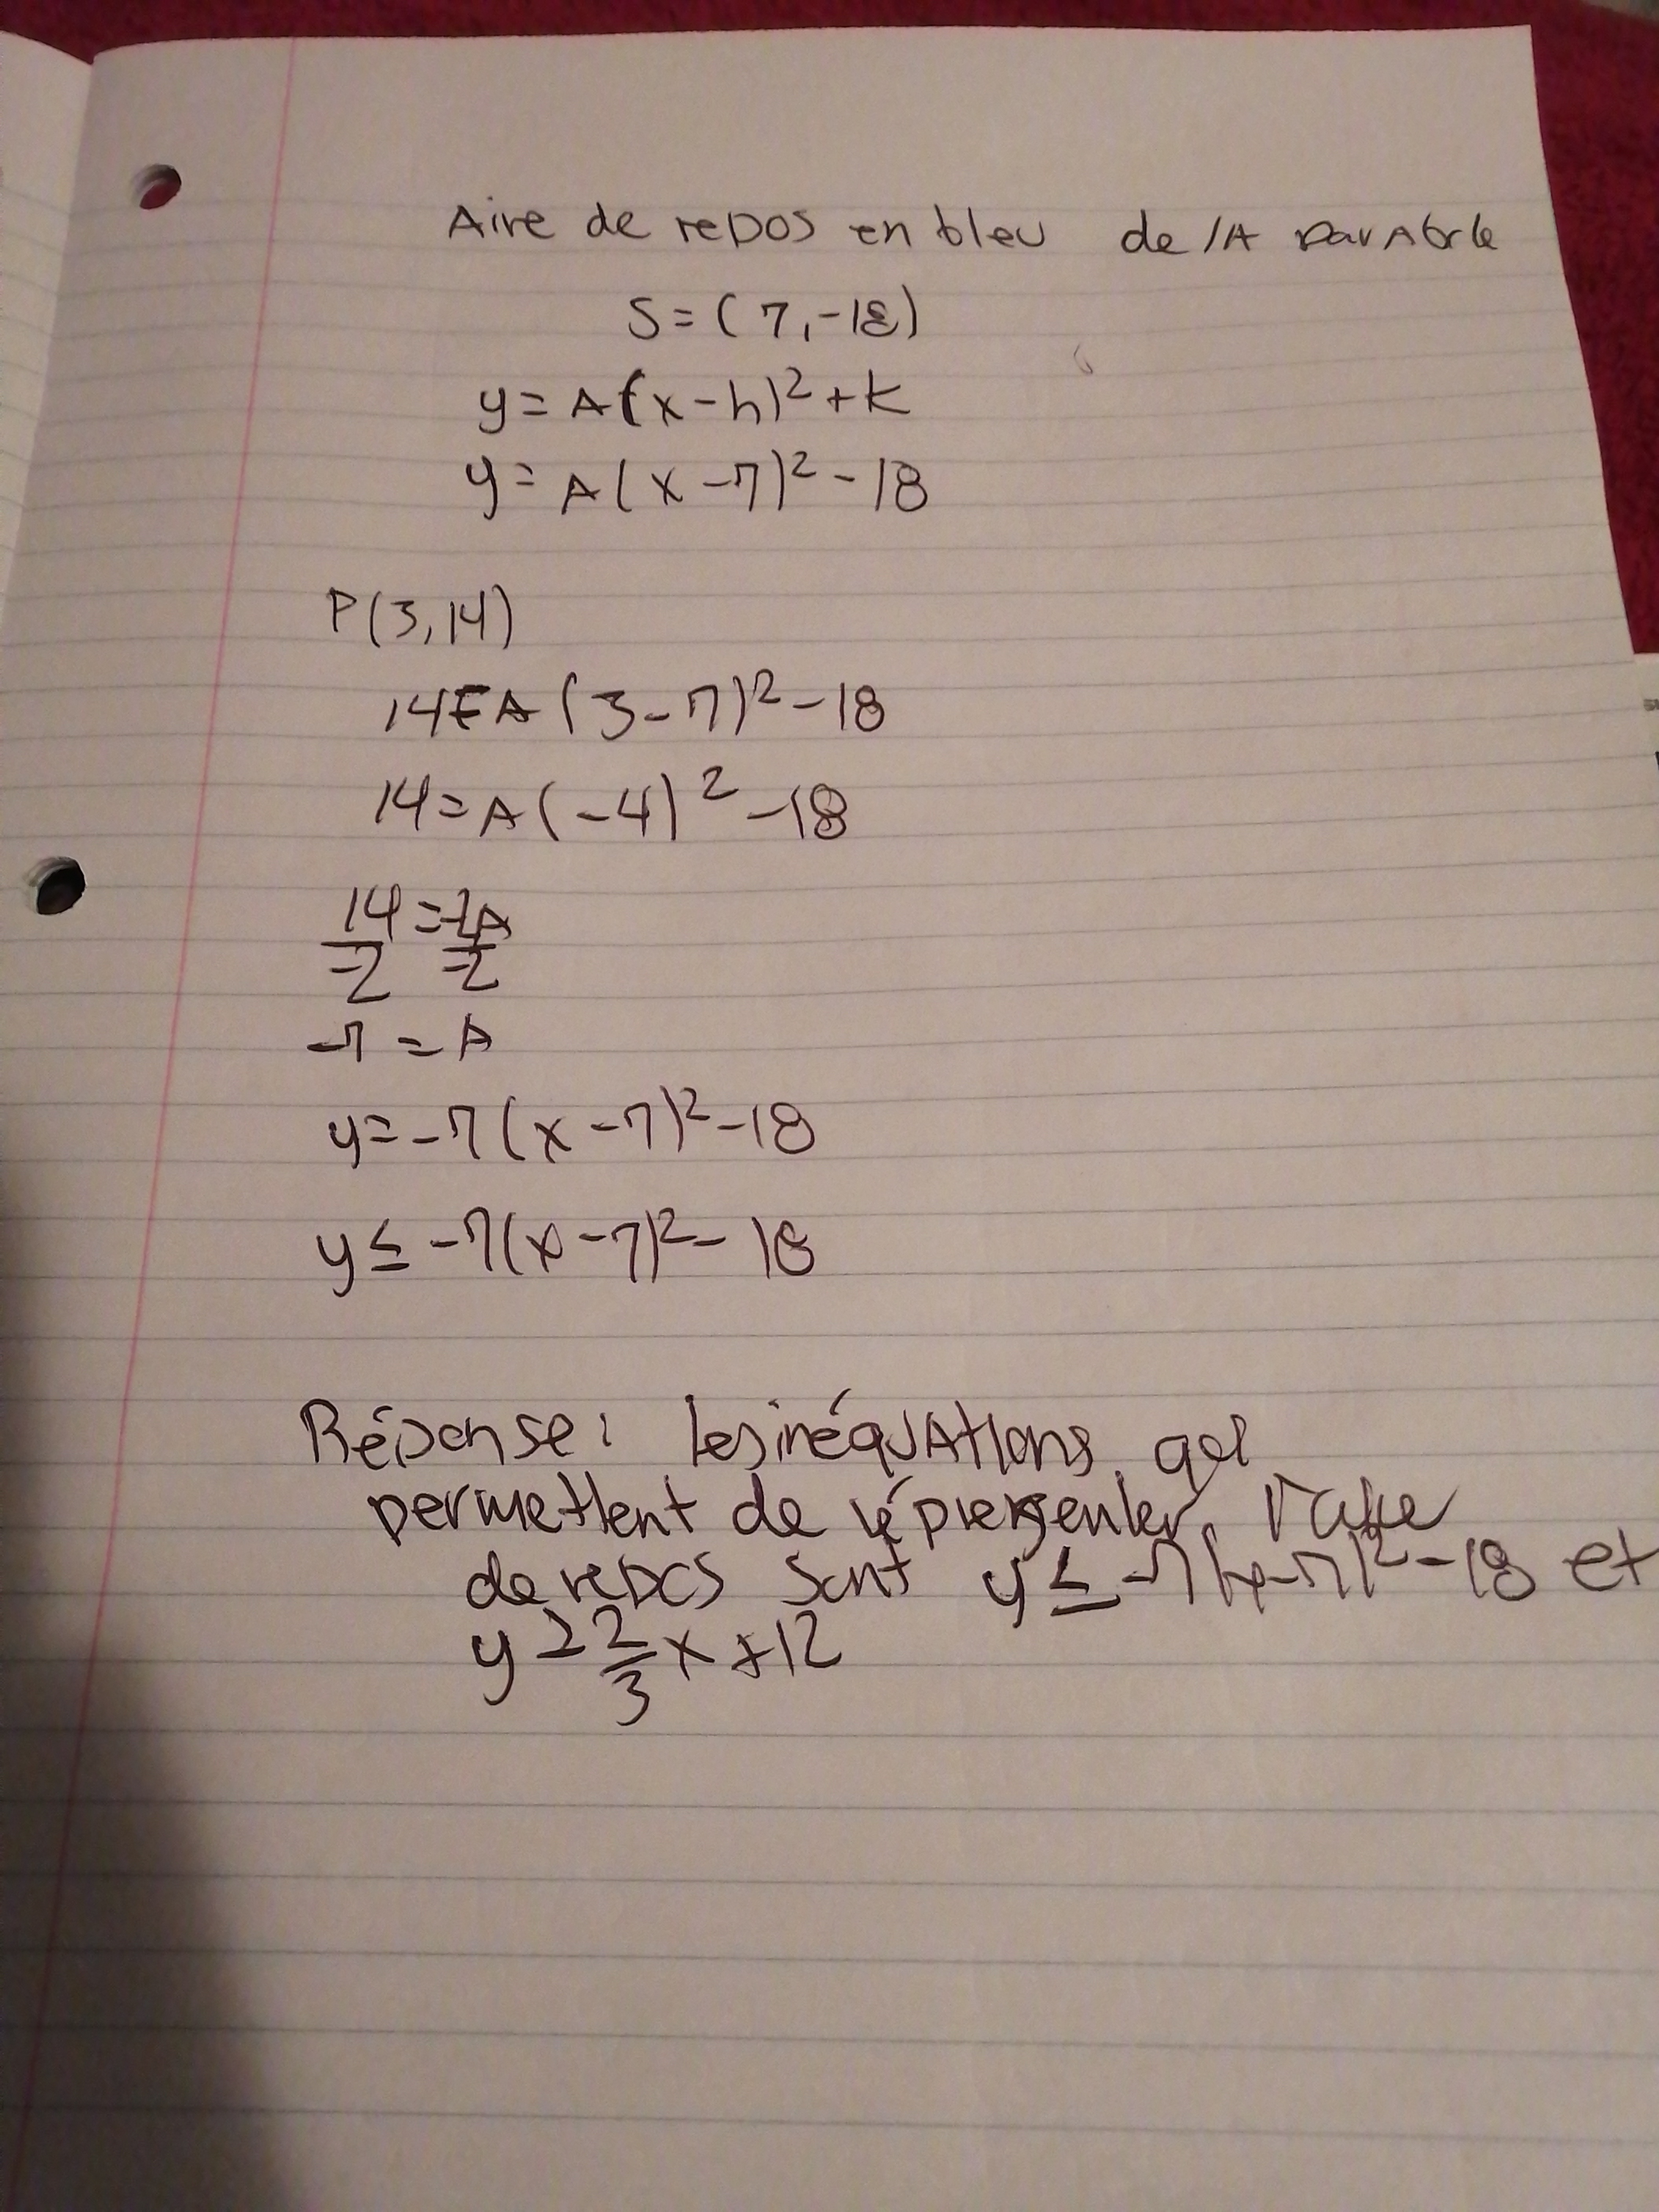 Aire de repos en bleu de lA parAbole
S = (7, -18)
y = A(x - h)² + k
y = A(x - 7)² - 18
P(3, 14)
14 = A(3 - 7)² - 18
14 = A(-4)² - 18
14 = -2A
-2 -2
-7 = A
y = -7(x - 7)² - 18
y ≤ -7(x - 7)² - 18
Réponse: les inéquAtions qui
permettent de représenter l'aire
de repos sont y ≤ -7(x-7)² - 18 et
y ≥ 2/3 x + 12